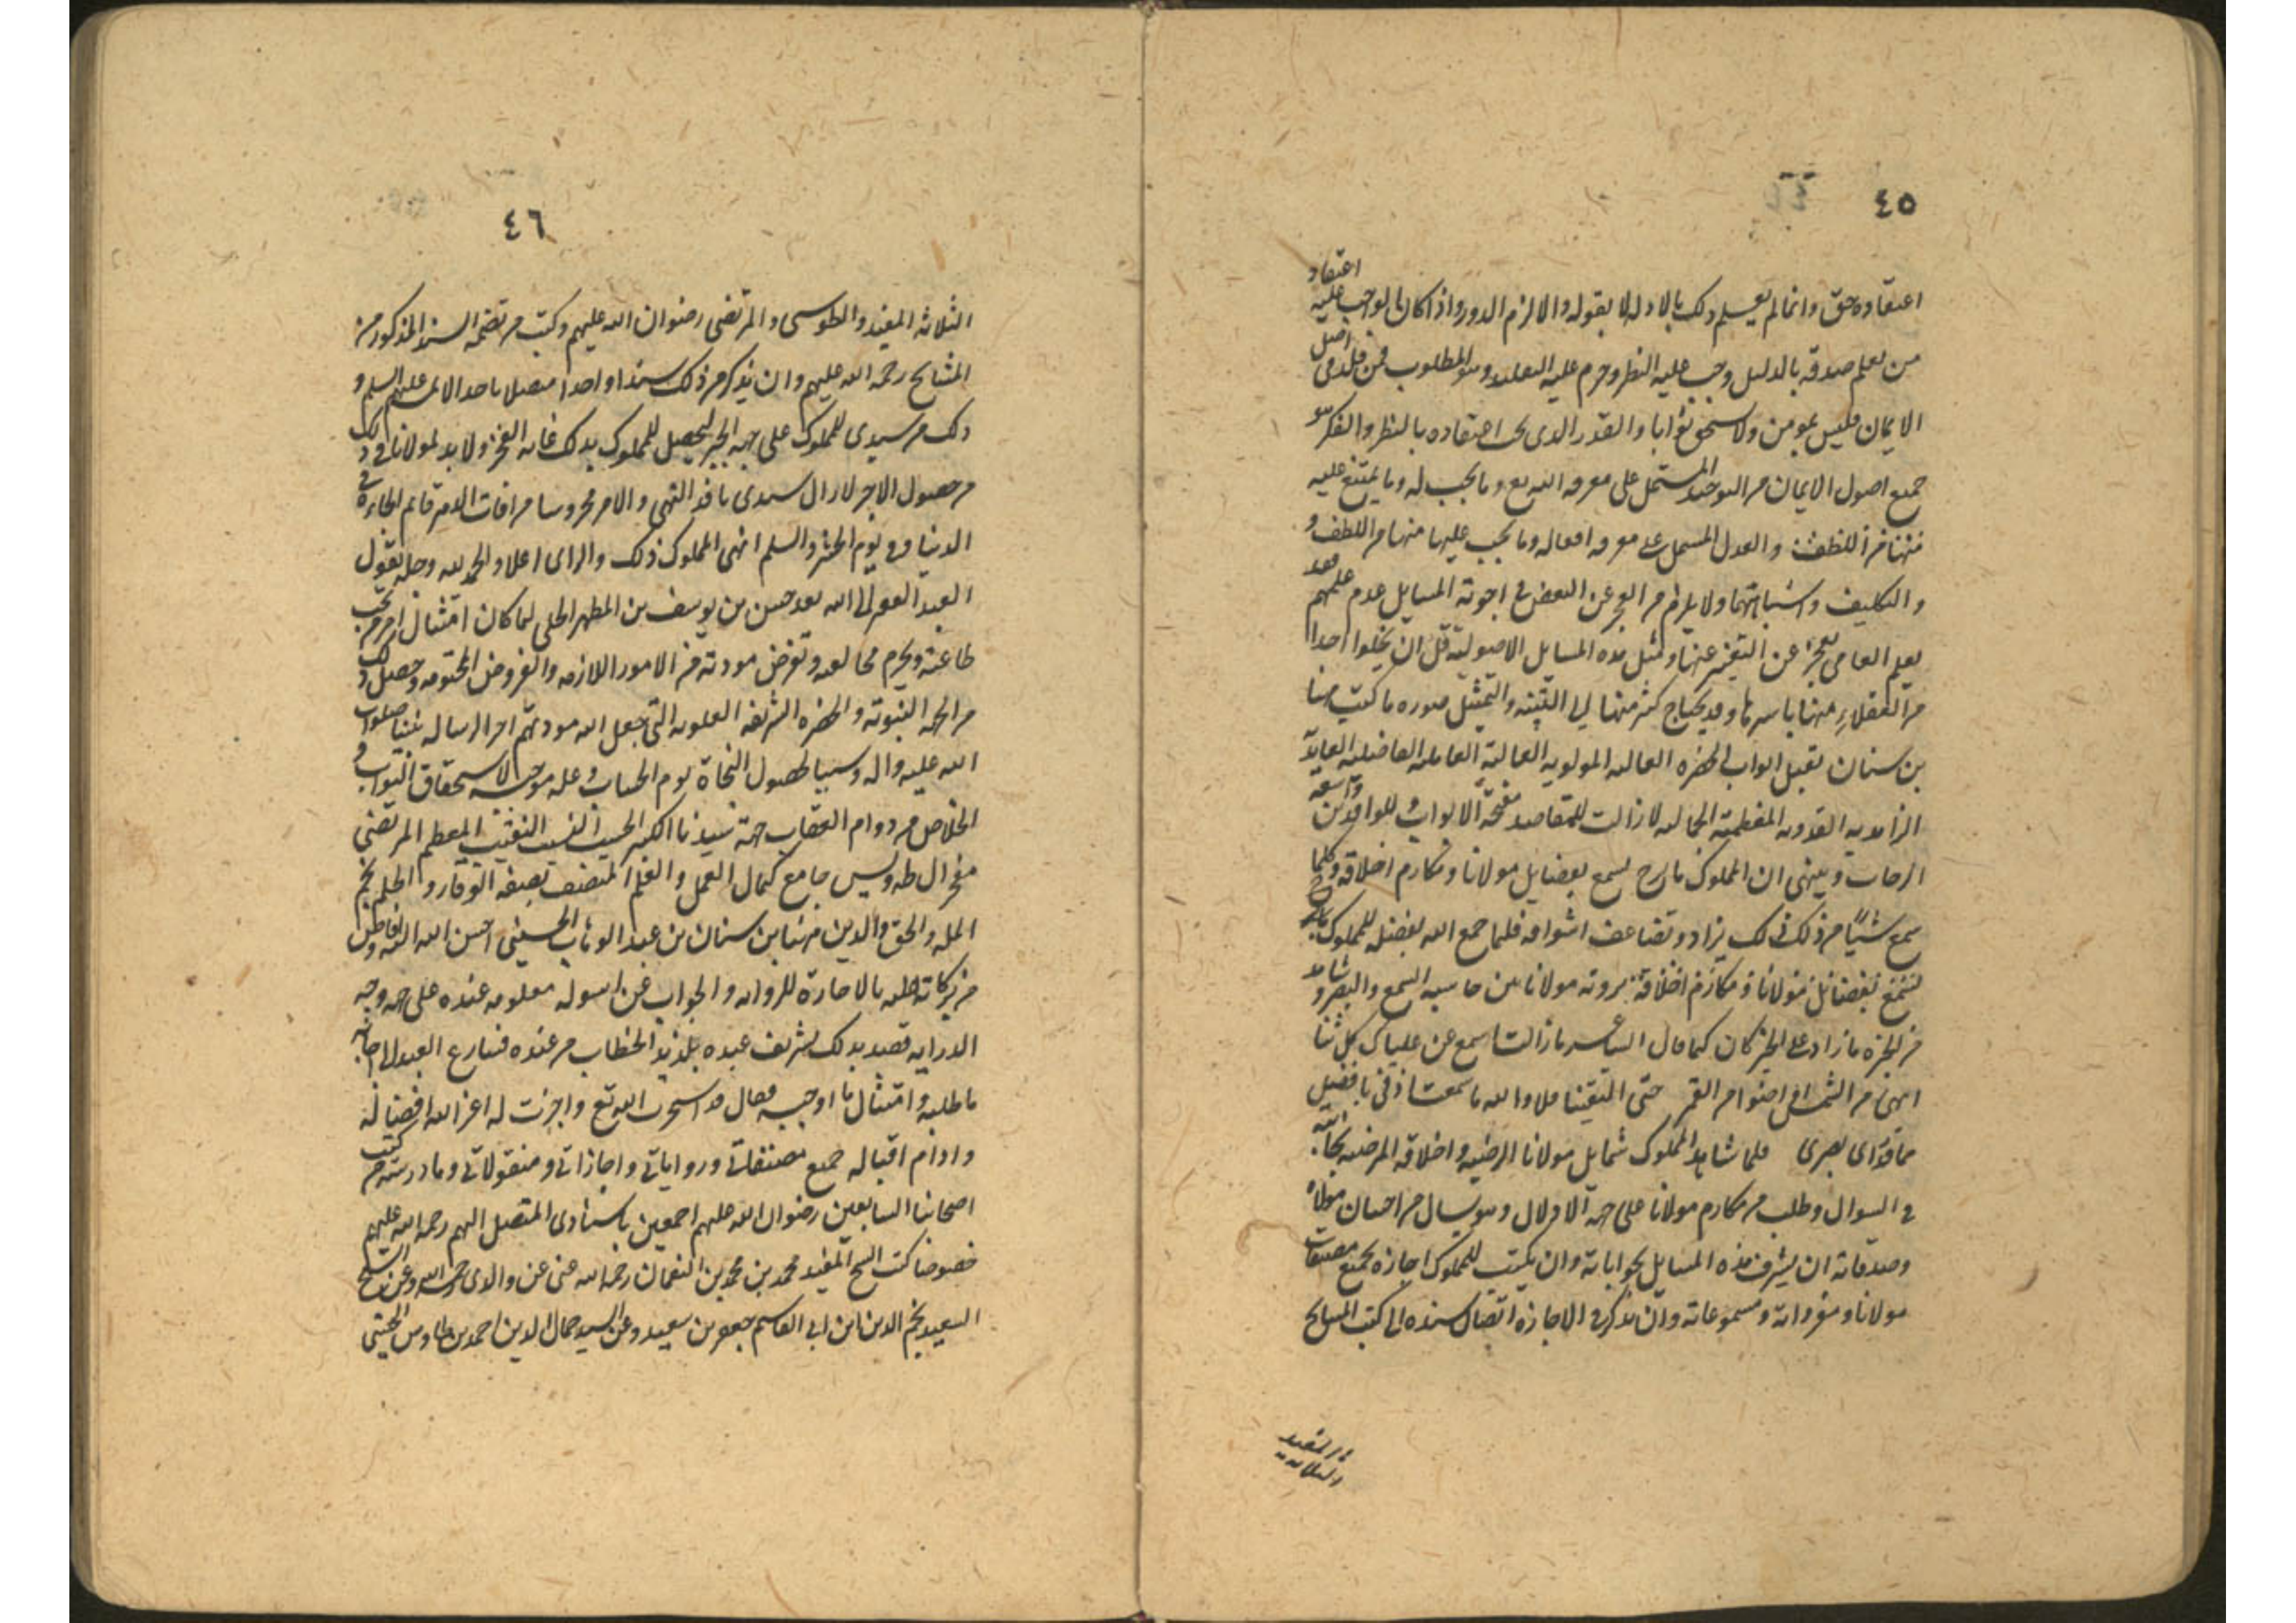 ٤٥
اعتقاد
اعتقاده حق وانما لم يعلم ذلك بالادله لا بقوله والا لزم الدور واذا كان الواجب عليه
من يعلم صدقه بالدليل وجب عليه النظر وحرم عليه التقليد وهو المطلوب فمن قلد في اصل
الايمان فليس بمومن ولا يستحق ثوابا والقدر الذي يجب اعتقاده بالنظر والفكر هو
جميع اصول الايمان من التوحيد المشتمل على معرفه الله تع وما يجب له وما يمتنع عليه
والعدل المشتمل على معرفه افعاله وما يجب عليها منها من اللطف و
والتكليف واشباههما ولا يلزم من العجز عن البعض في اجوبة المسايل عدم علمهم فقد
يعلم العامي يعجز عن التعبير عنها ومثل هذه المسايل الاصوليه قل ان يخلوا احدا
من العقلاء منها باسرها وقد يحتاج كثر منها الى التثبته والتمثيل صوره ما كتبت مهنا
بن سنان يقبل ابواب الحضره العاليه المولويه العالمية العامليه الفاضليه العابدة
الزاهديه القدويه المعظمية الجماليه لا زالت للمقاصد مفتحة الابواب وللوافدين واسعه
الرحاب وينهي ان المملوك ما برح يسمع بفضايل مولانا ومكارم اخلاقه وكلما
سمع شيئا من ذلك يزاد وتضاعف اشواقه فلما جمع الله بفضله للمملوك
بفضائل مولانا ومكارم اخلاقه بروته مولانا بين حاسيه السمع والبصر وشاهد
من الخبره ما زاد على الخبر كان كما قال الشاعر ما زالت اسمع عن علياك كل ثنا
ابهى من الشمس او اضوا من القمر حتى التقينا فلا والله ما سمعت اذني بافضل
مما قد راى بصرى فلما شاهد المملوك شمايل مولانا الرضيه واخلاقه المرضيه
في السوال وطلب من مكارم مولانا على جهه الادلال وهو يسال من احسان مولانا
وصدقاته ان يشرف هذه المسايل بجواباته وان يكتب للمملوك اجازه بجميع مصنفات
مولانا ومقرواته ومسموعاته وان يذكر في الاجازه اتصال سنده الى كتب المشايخ
٤٦
الثلاثه المفيد والطوسى والمرتضى رضوان الله عليهم وكتب من تضمه السند المذكور من
المشايخ رحمه الله عليهم وان يذكر من ذلك سندا واحدا متصلا باحد الائمه عليهم السلم و
ذلك من سيدي للمملوك على جهه الجبر ليحصل للمملوك بذلك غايه الفخر ولا بد لمولانا في ذلك
من حصول الاجر لا زال سيدى نافذ النهي والامر محروسا من افات الدهر قايم الجاه في
الدنيا وفي يوم الحشر والسلم انهى المملوك ذلك والراى اعلا والحمد لله وحده يقول
العبد الفقير الى الله تعه حسن بن يوسف بن المطهر الحلى لما كان امتثال امر من تجب
طاعته ويحرم مخالفه وتفرض مودته من الامور اللازمه والفروض المحتومه وحصل ذلك
من الجهه النبوته والحضره الشريفه العلويه التي جعل الله مودتهم اجر الرساله نبينا صلوات
الله عليه واله وسببا لحصول النجاة يوم الحساب وعله موجبه لاستحقاق الثواب و
الخلاص من دوام العقاب جهة سيدنا الكبير الحسيب النسيب النقيب المعظم المرتضى
مفخر ال طه ويس جامع كمال العمل والعلم المتصف بصفه الوقار والحلم نجم
المله والحق والدين مهنا بن سنان بن عبد الوهاب الحسيني احسن الله اليه وافاض
من بركاته طلبه بالاجازة للروايه والجواب عن اسوله معلومه عنده على جهه وجه
الدرايه قصد بذلك تشريف عبده بلذيذ الخطاب من عنده فسارع العبد الى اجابه
ما طلبه وامتثال ما اوجبه فقال قد استخرت الله تع واجزت له اعز الله افضاله
وادام اقباله جميع مصنفاتي ورواياتي واجازاتي ومنقولاتي وما درسته من كتب
اصحابنا السابقين رضوان الله عليهم اجمعين باسنادى المتصل اليهم رحمه الله عليهم
خصوصا كتب الشيخ المفيد محمد بن محمد بن النعمان رحمه الله عنى عن والدى رحمه الله وعن الشيخ
السعيد نجم الدين ابن ابي القاسم جعفر بن سعيد وعن السيد جمال الدين احمد بن طاوس الحسيني